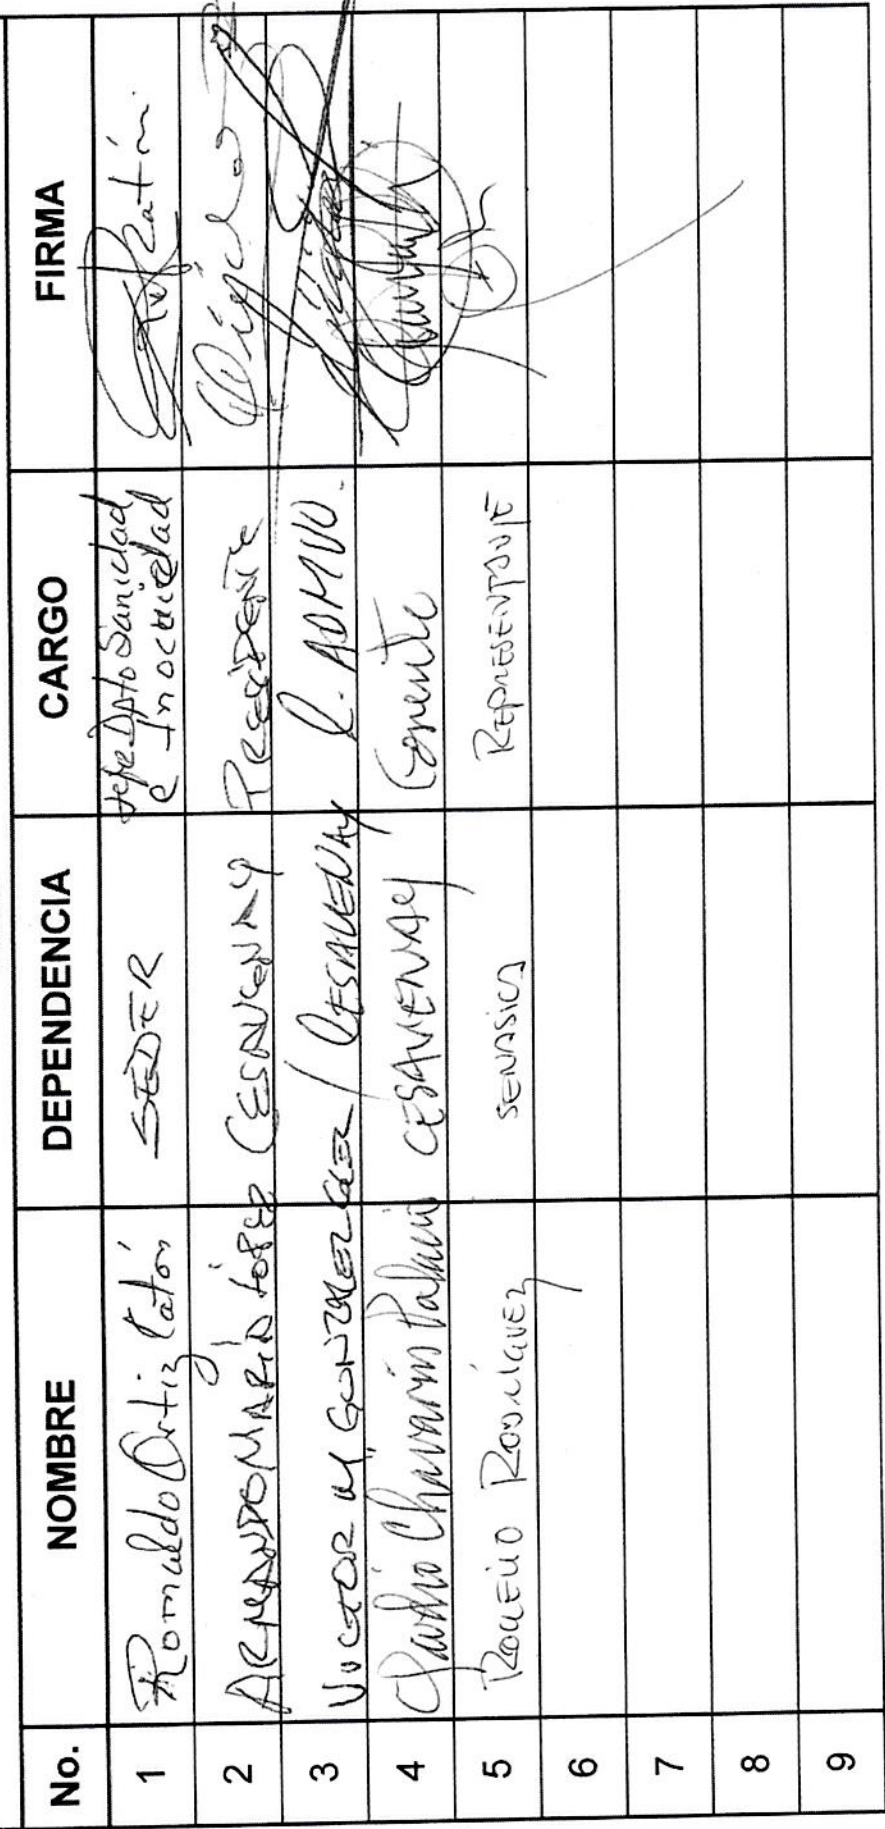 No. NOMBRE DEPENDENCIA CARGO FIRMA
1 Romualdo Ortiz Catón SEDER Jefe Dpto Sanidad
e Inocuidad
2 ARMANDO MARÍN LÓPEZ CESAVENAY PRESIDENTE
3 VICTOR M. GONZALEZ CESAVENAY ADMVO.
4 Claudio Chavarín Palacio CESAVENAY Gerente
5 ROGELIO SENASICA REPRESENTANTE
6
7
8
9